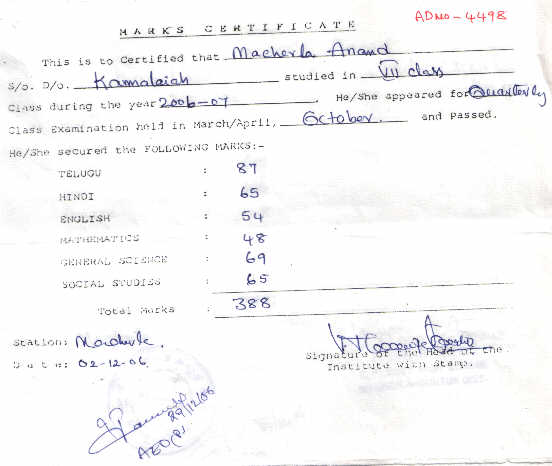 ADNo - 4498
MARKS CERTIFICATE
This is to Certified that Macherla Anand
S/o. D/o. Kamalaiah studied in VII class
Class during the year 2006-07. He/She appeared for Quarterly
Class Examination held in March/April, October. and Passed.
He/She secured the FOLLOWING MARKS:-
TELUGU : 87
HINDI : 65
ENGLISH : 54
MATHEMATICS : 48
GENERAL SCIENCE : 69
SOCIAL STUDIES : 65
Total Marks : 388
Station: Macherla.
Date: 02-12-06.
Signature of the Head of the
Institute with Stamp.
29/12/06